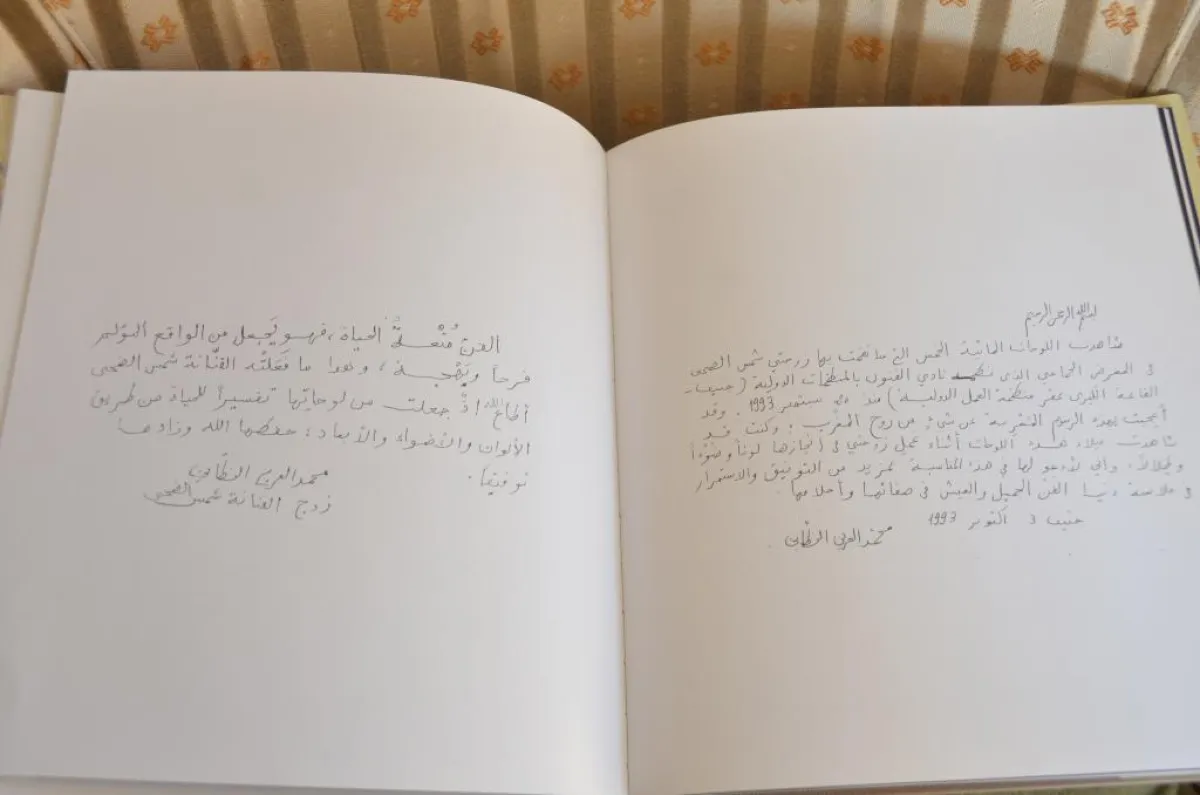 بسم الله الرحمن الرحيم
شاهدت اللوحات المائية الخمس التي ساهمت بها زوجتي شمس الضحى
في المعرض الجماعي الذي نظمه نادي الفنون بالمنظمات الدولية (جنيف -
القاعة الكبرى بمقر منظمة العمل الدولية) منذ سبتمبر 1993. وقد
أعجبت بهذه الرسوم المعبرة عن شيء من روح المغرب؛ وكنت قد
شاهدت ميلاد هذه اللوحات أثناء عمل زوجتي في إنجازها لوناً وضوءاً
وظلالاً. وإني لأدعو لها في هذه المناسبة بمزيد من التوفيق والاستمرار
في ملامسة دنيا الفن الجميل والعيش في صفائها وأحلامها.
جنيف 3 أكتوبر 1993
محمد العربي الخطابي
الفنّ مُتْعـة الحياة، فهو يَجعل من الواقع المؤلم
فرحاً وبَهْجـة، وهذا ما فَعَلتْه الفنّانة شمس الضحى
أطاع الله إذْ جعلت من لوحاتها تفسيراً للحياة من طريق
الألوان والأضواء والأبعاد؛ حفظها الله وزادها
توفيقا.
محمد العربي الخطابي
زوج الفنانة شمس الضحى